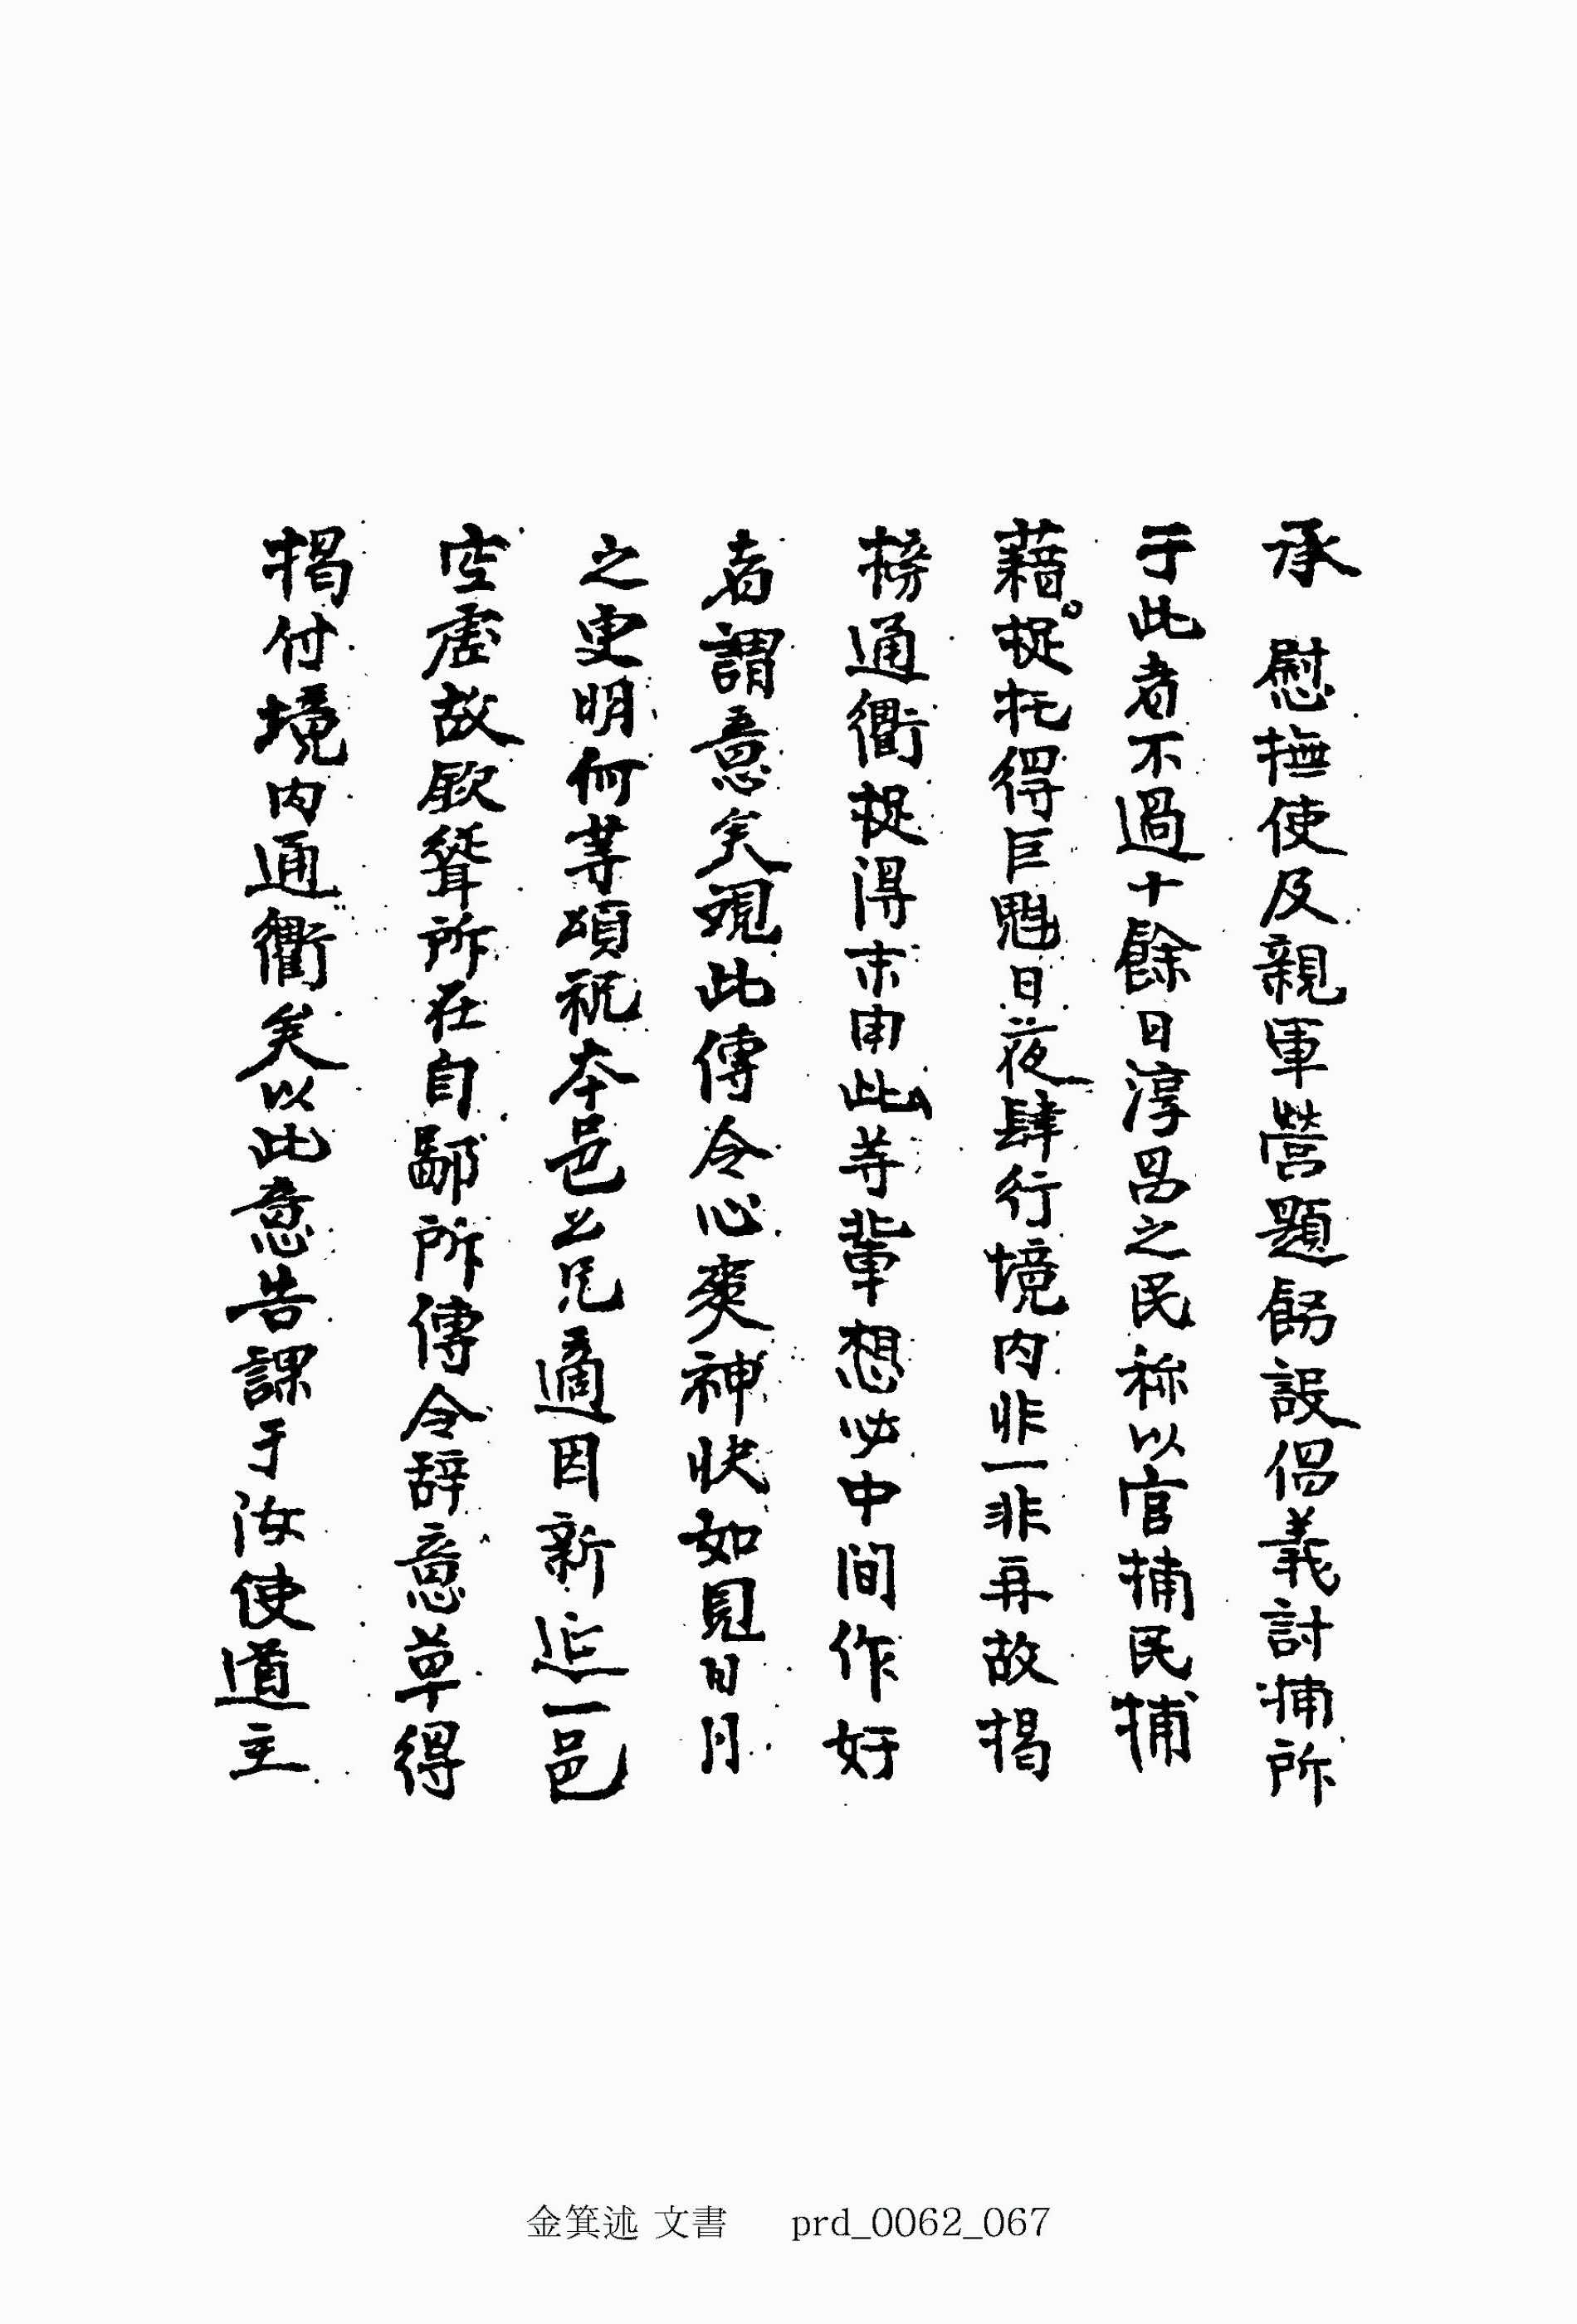 承 慰撫使及親軍營題飭設倡義討捕所
于此者不過十餘日淳昌之民称以官捕民捕
藉。捉托得巨魁日夜肆行境內非一非再故揭
榜通衢捉得末由此等輩想必中間作奸
者謂意矣現此傳令心爽神快如見日月
之更明何等頌祝本邑公兄適因新延一邑
空虛故厥聳所在自鄙所傳令辞意草得
揭付境內通衢矣以此意告課于汝使道主
金箕述 文書 prd_0062_067